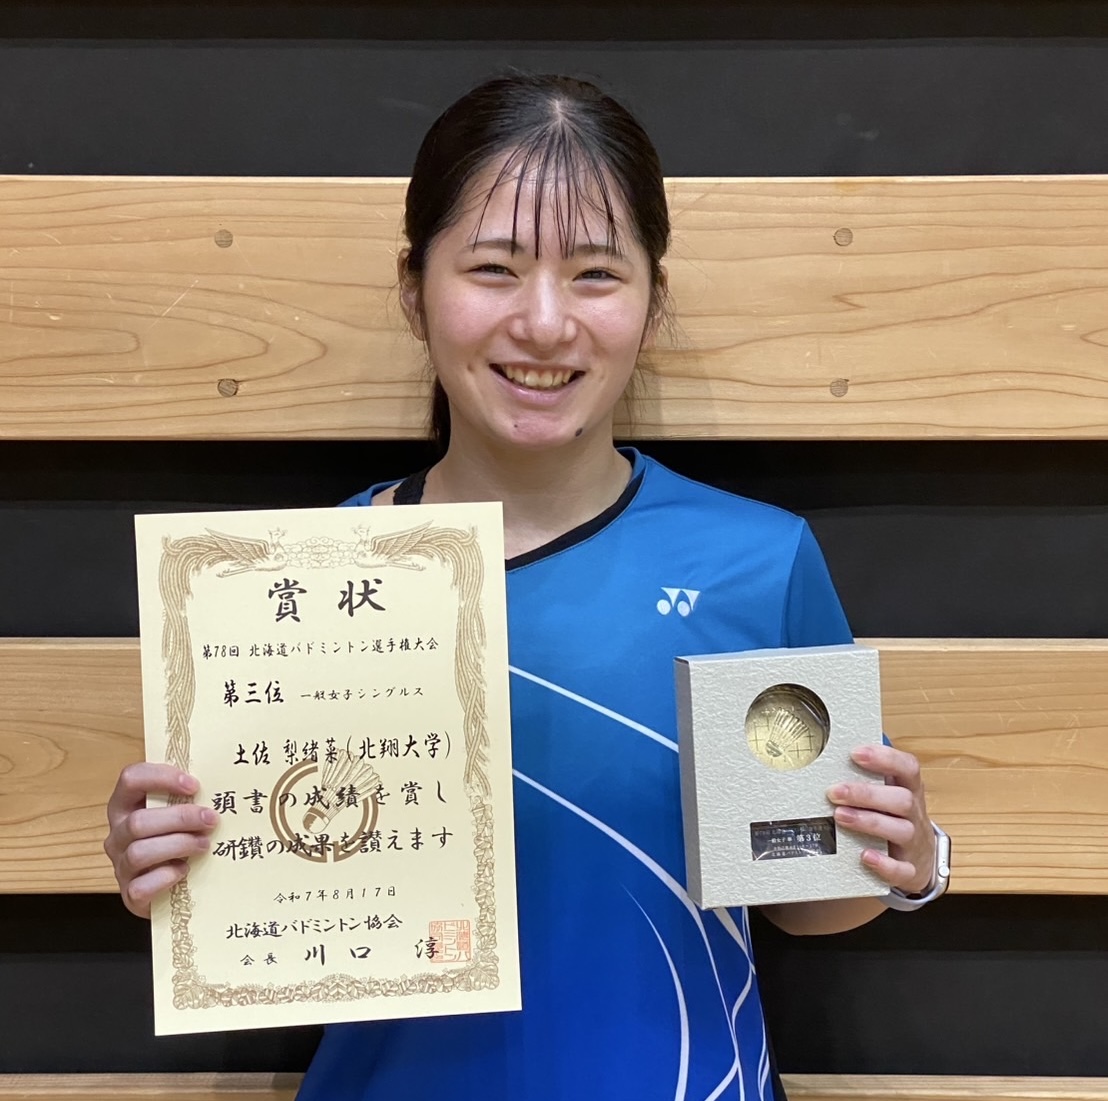 賞状
第78回 北海道バドミントン選手権大会
第三位 一般女子シングルス
土佐 梨緒菜(北翔大学)
頭書の成績を賞し
研鑽の成果を讃えます
令和7年8月17日
北海道バドミントン協会
会長 川口 淳
第3位